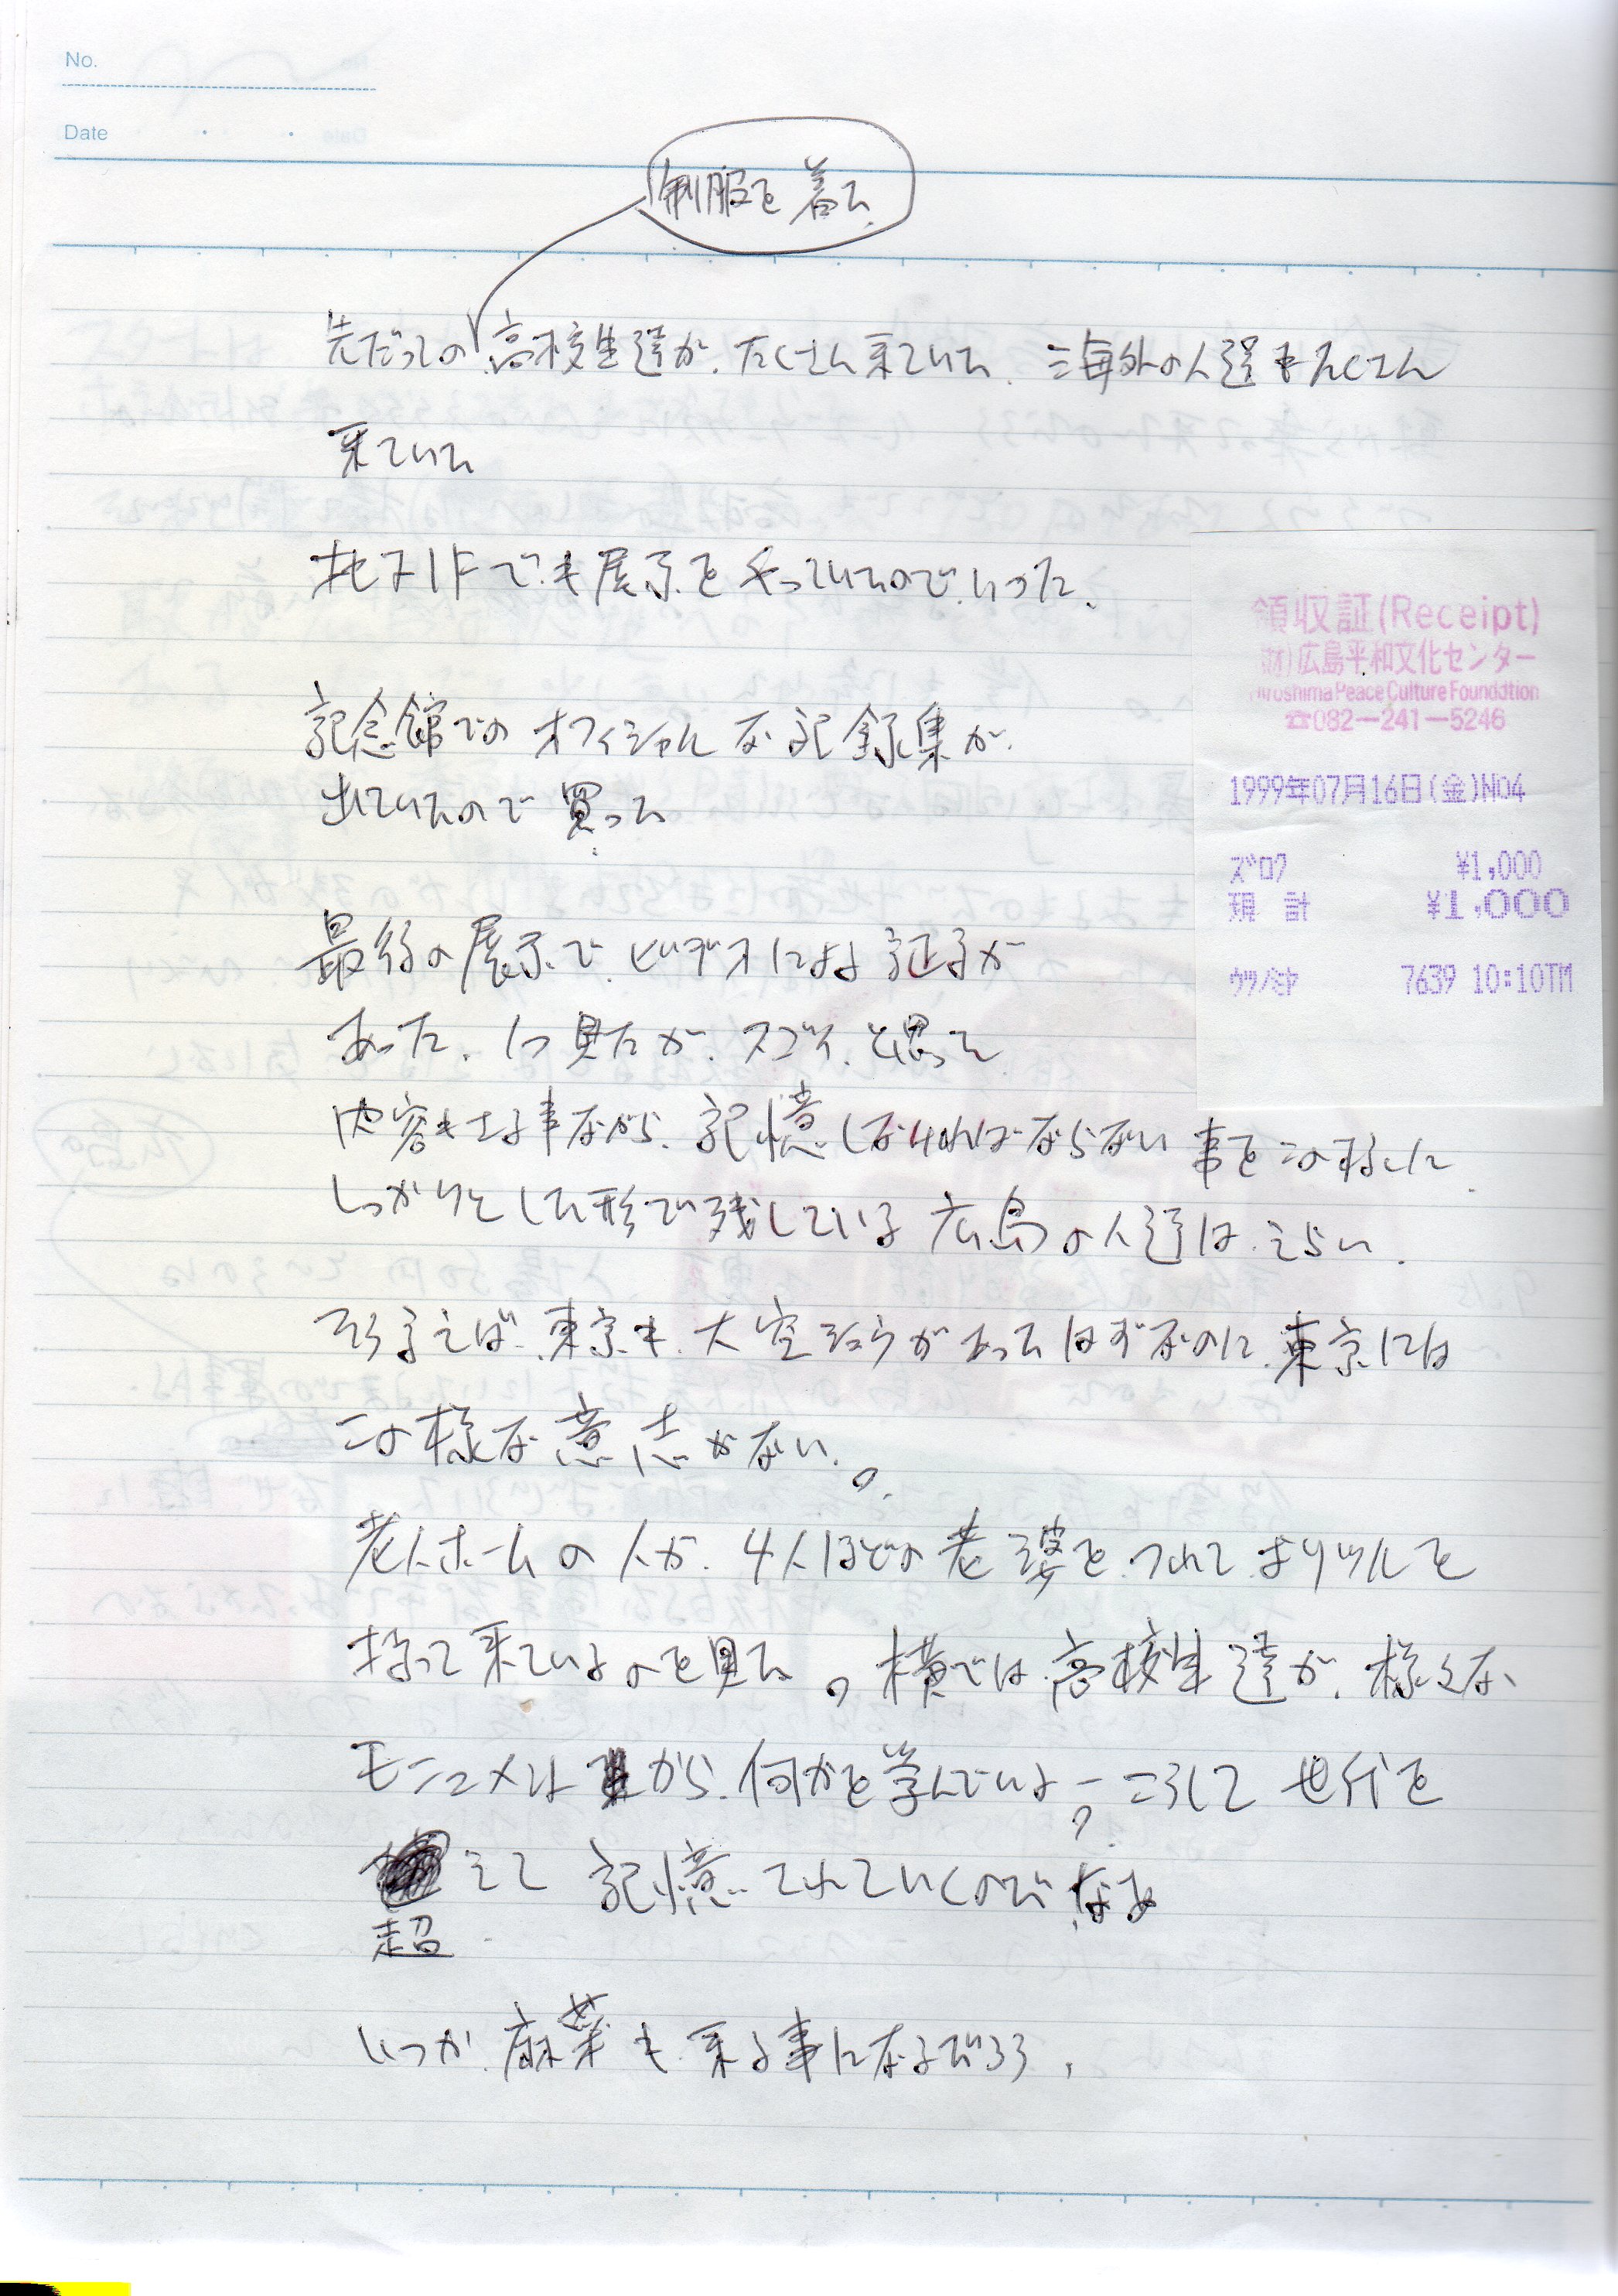 No.
Date
制服を着た
先だっての高校生達が、たくさん来ていた、海外の人達もたくさん
来ていた
地下1Fでも展示をやっていたので、いった。
記念館でのオフィシャルな記録集が、
出ていたので買った
最後の展示で、ビデオによる証言が
あった、1つ見たが、スゴイ、と思った
内容もさる事ながら、記憶しなければならない事をこの様に、
しっかりとした形で残している広島の人達は、えらい、
そう言えば、東京も、大空シュウがあったはずなのに、東京には
この様な意志がない。
老人ホームの人が、4人ほどの老婆を、つれて、おりヅルを
持って来ているのを見た。横では、高校生達が、様々な、
モニュメントから、何かを学んでいる。こうして世代を
超えて記憶されていくのだなあ
いつか、麻葉も、来る事になるだろう、
領収証(Receipt)
(財)広島平和文化センター
Hiroshima Peace Culture Foundation
☎082-241-5246
1999年07月16日(金)No4
ズロク ¥1,000
現計 ¥1,000
ウツノミヤ 7639 10:10TM